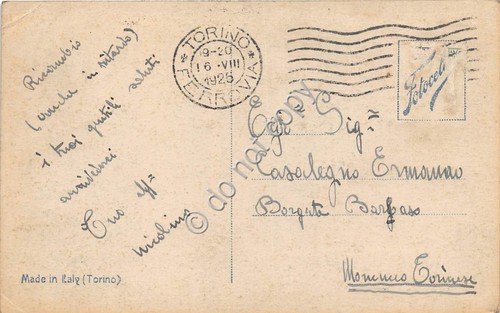 Ricambio
(anche in ritardo)
i tuoi gentili saluti
arrivederci
Tuo
Nicolino
TORINO
19-20
16-VIII
1925
FERROVIA
Fotocelere
Egr. Sig.
Casalegno Ermanno
Borgata Barbaso
Torinese
© do not copy
Made in Italy (Torino)